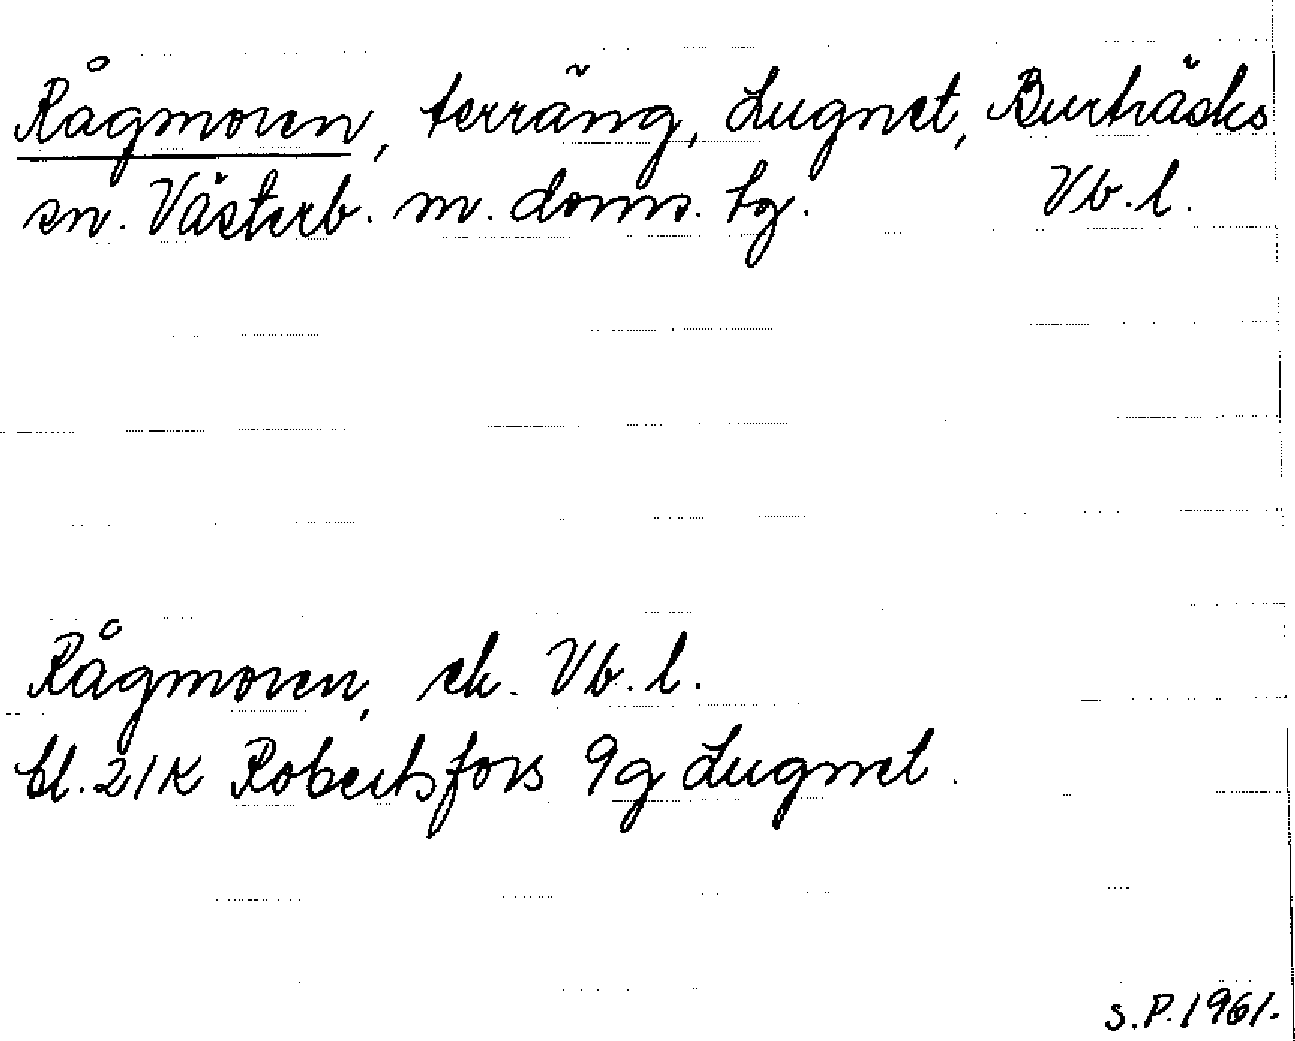 Rågmoren, terräng, Lugnet, Burträsks
sn. Västerb. m. doms. tg. Vb. l.
Rågmoren, ek. Vb. l.
bl. 21K Robertsfors 9g Lugnet.
S.P. 1961.